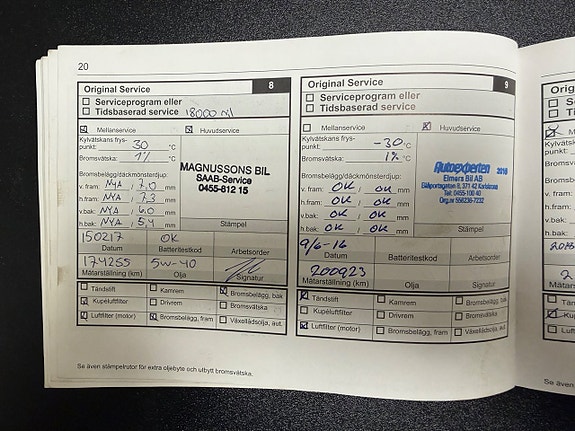 20
Original Service 8
Serviceprogram eller
Tidsbaserad service 18000 mil
Mellanservice Huvudservice
Kylvätskans frys-
punkt: 30 °C
Bromsvätska: 1% °C
Bromsbelägg/däckmönsterdjup:
v. fram: NYA / 7.0 mm
h.fram: NYA / 7.3 mm
v.bak: NYA / 6.0 mm
h.bak: NYA / 5.4 mm
MAGNUSSONS BIL
SAAB-Service
0455-812 15
Stämpel
150217 OK
Datum Batteritestkod Arbetsorder
174255 5w-40
Mätarställning (km) Olja Signatur
Tändstift Kamrem Bromsbelägg, bak
Kupéluftfilter Drivrem Bromsvätska
Luftfilter (motor) Bromsbelägg, fram Växellådsolja, aut.
Se även stämpelrutor för extra oljebyte och utbytt bromsvätska.
Original Service 9
Serviceprogram eller
Tidsbaserad service
Mellanservice Huvudservice
Kylvätskans frys-
punkt: -30 °C
Bromsvätska: 1% °C
Bromsbelägg/däckmönsterdjup:
v. fram: OK / OK mm
h.fram: OK / OK mm
v.bak: OK / OK mm
h.bak: OK / OK mm
Autoexperten 2016
Elmers Bil AB
371 42 Karlskrona
Tel: 0455-100 40
Org.nr 556236-7232
Stämpel
9/6-16
Datum Batteritestkod Arbetsorder
200923
Mätarställning (km) Olja Signatur
Tändstift Kamrem Bromsbelägg, bak
Kupéluftfilter Drivrem Bromsvätska
Luftfilter (motor) Bromsbelägg, fram Växellådsolja, aut.
Original
Se även